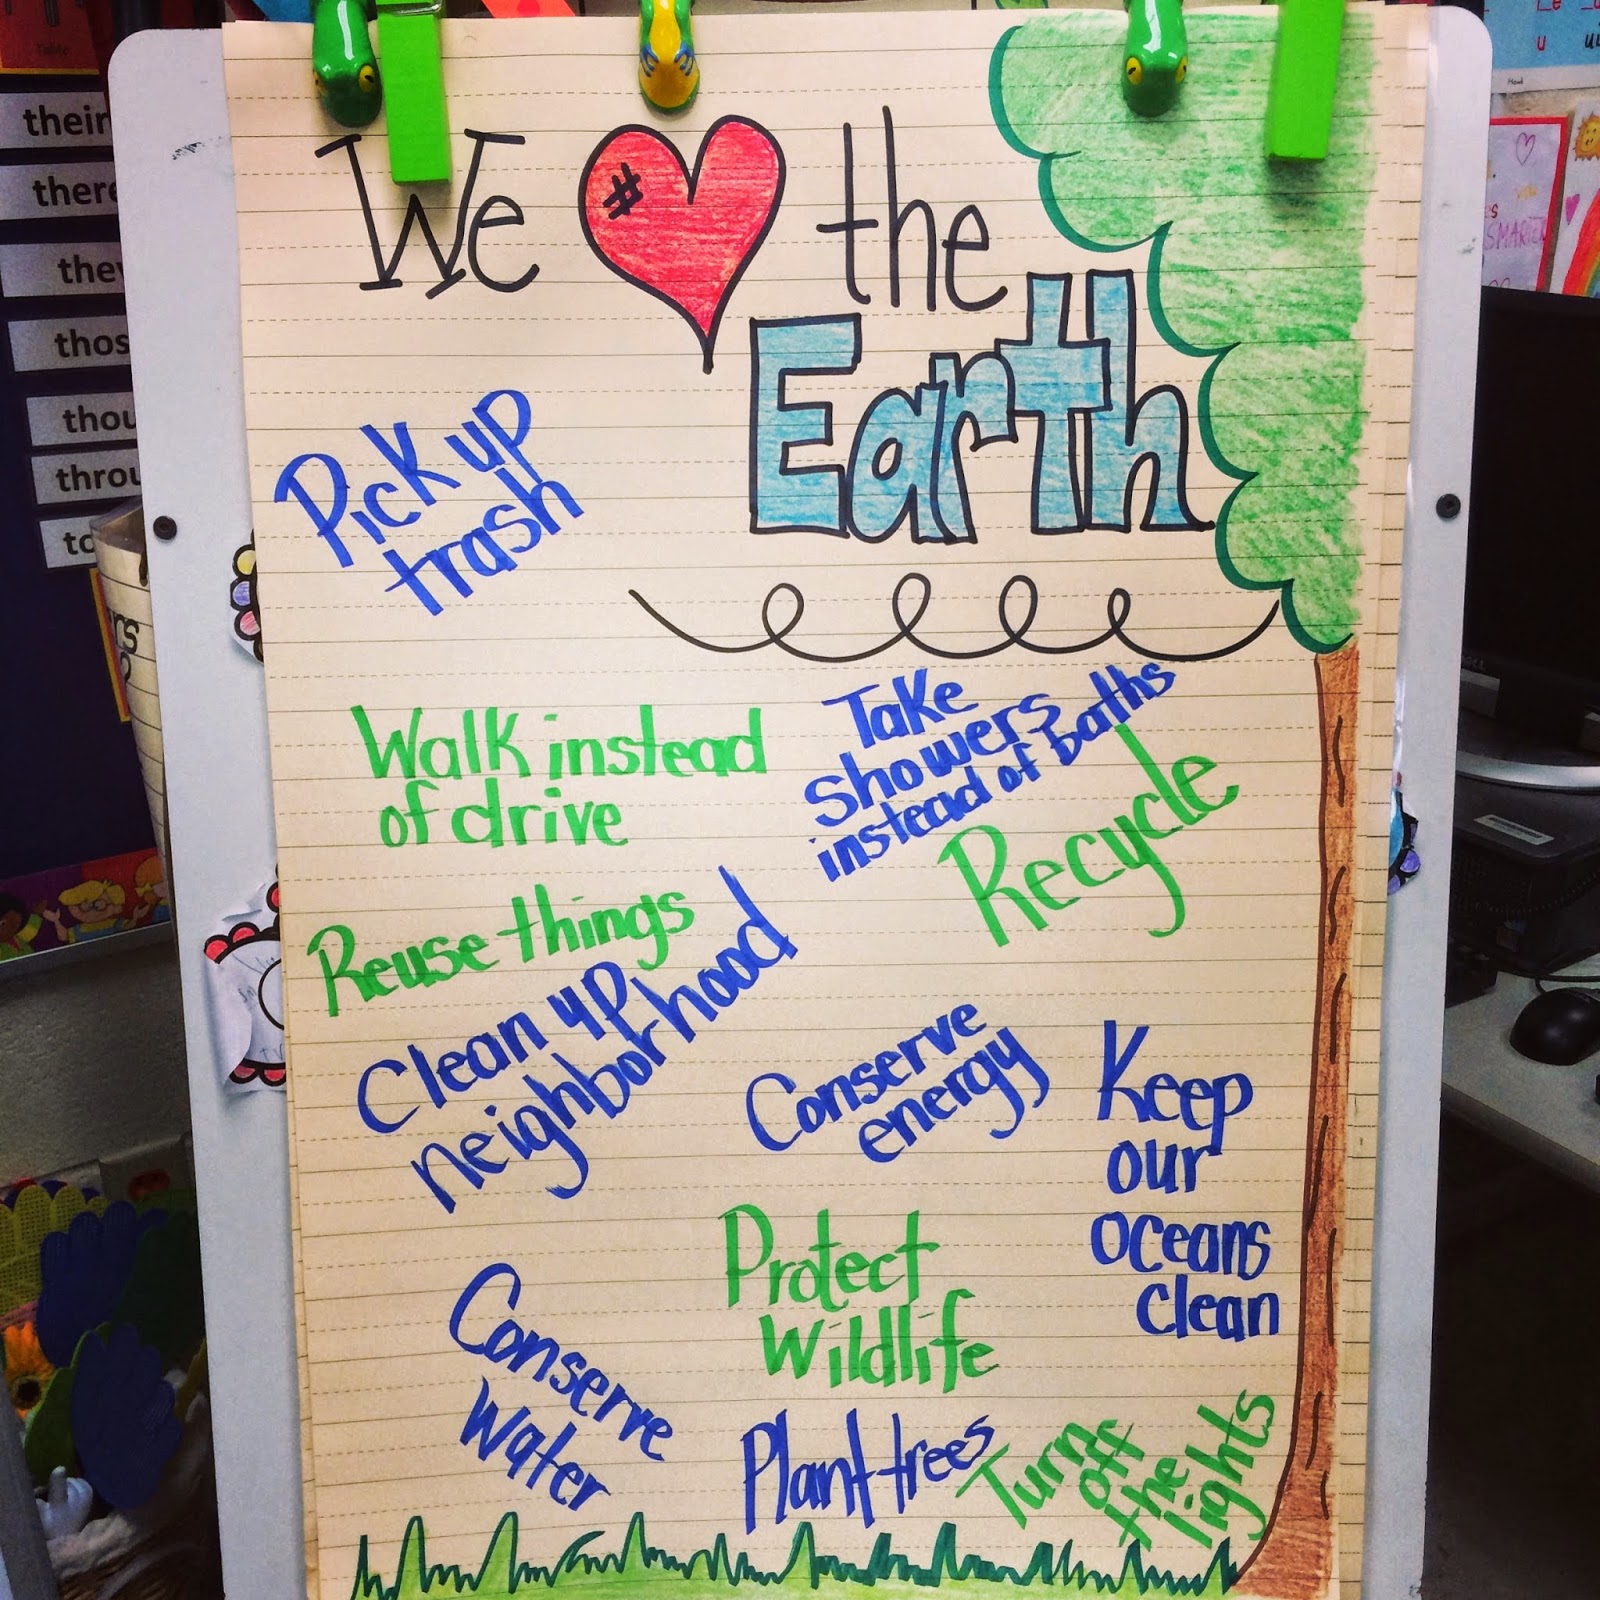 We # the
Earth
Pick up
trash
Walk instead
of drive
Take
showers
instead of baths
Recycle
Reuse things
Clean up
neighborhood
Conserve
energy
Keep
our
oceans
clean
Protect
Wildlife
Conserve
Water
Plant trees
Turn
off
the
lights
their
there
they
thos
thou
throu
to
SMARTER